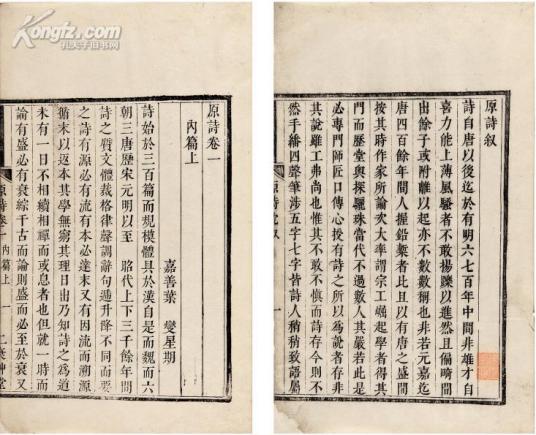 Kongfz.com
孔夫子旧书网
原詩叙
詩自唐以後迄於有明六七百年中間非雄才自
喜力能上薄風騷者不敢揚躒以進然且偏畸間
出餘子或附離以起亦不數數稱也非若元嘉迄
唐四百餘年間人握鉛槧者比且以有唐之盛間
按其時作家所論次大率謂宗工崛起學者得其
門而歷堂與探驪珠當代不過數人其嚴若此是
必專門師匠口傳心授有詩之所以為說者存非
其說雖工弗尚也惟其不敢不慎而詩存今則不
然手繙四聲筆涉五字七字皆詩人稍稍致語屬
原詩叙
一
原詩卷一
內篇上
嘉善葉 燮星期
詩始於三百篇而規模體具於漢自是而魏而六
朝三唐歷宋元明以至 昭代上下三千餘年間
詩之質文體裁格律聲調辭句遞升降不同而要
之詩有源必有流有本必達末又有因流而溯源
循末以返本其學無窮其理日出乃知詩之為道
未有一日不相續相禪而或息者也但就一時而
論有盛必有衰綜千古而論則盛而必至於衰又
原詩卷一 內篇上
一
二棄艸堂